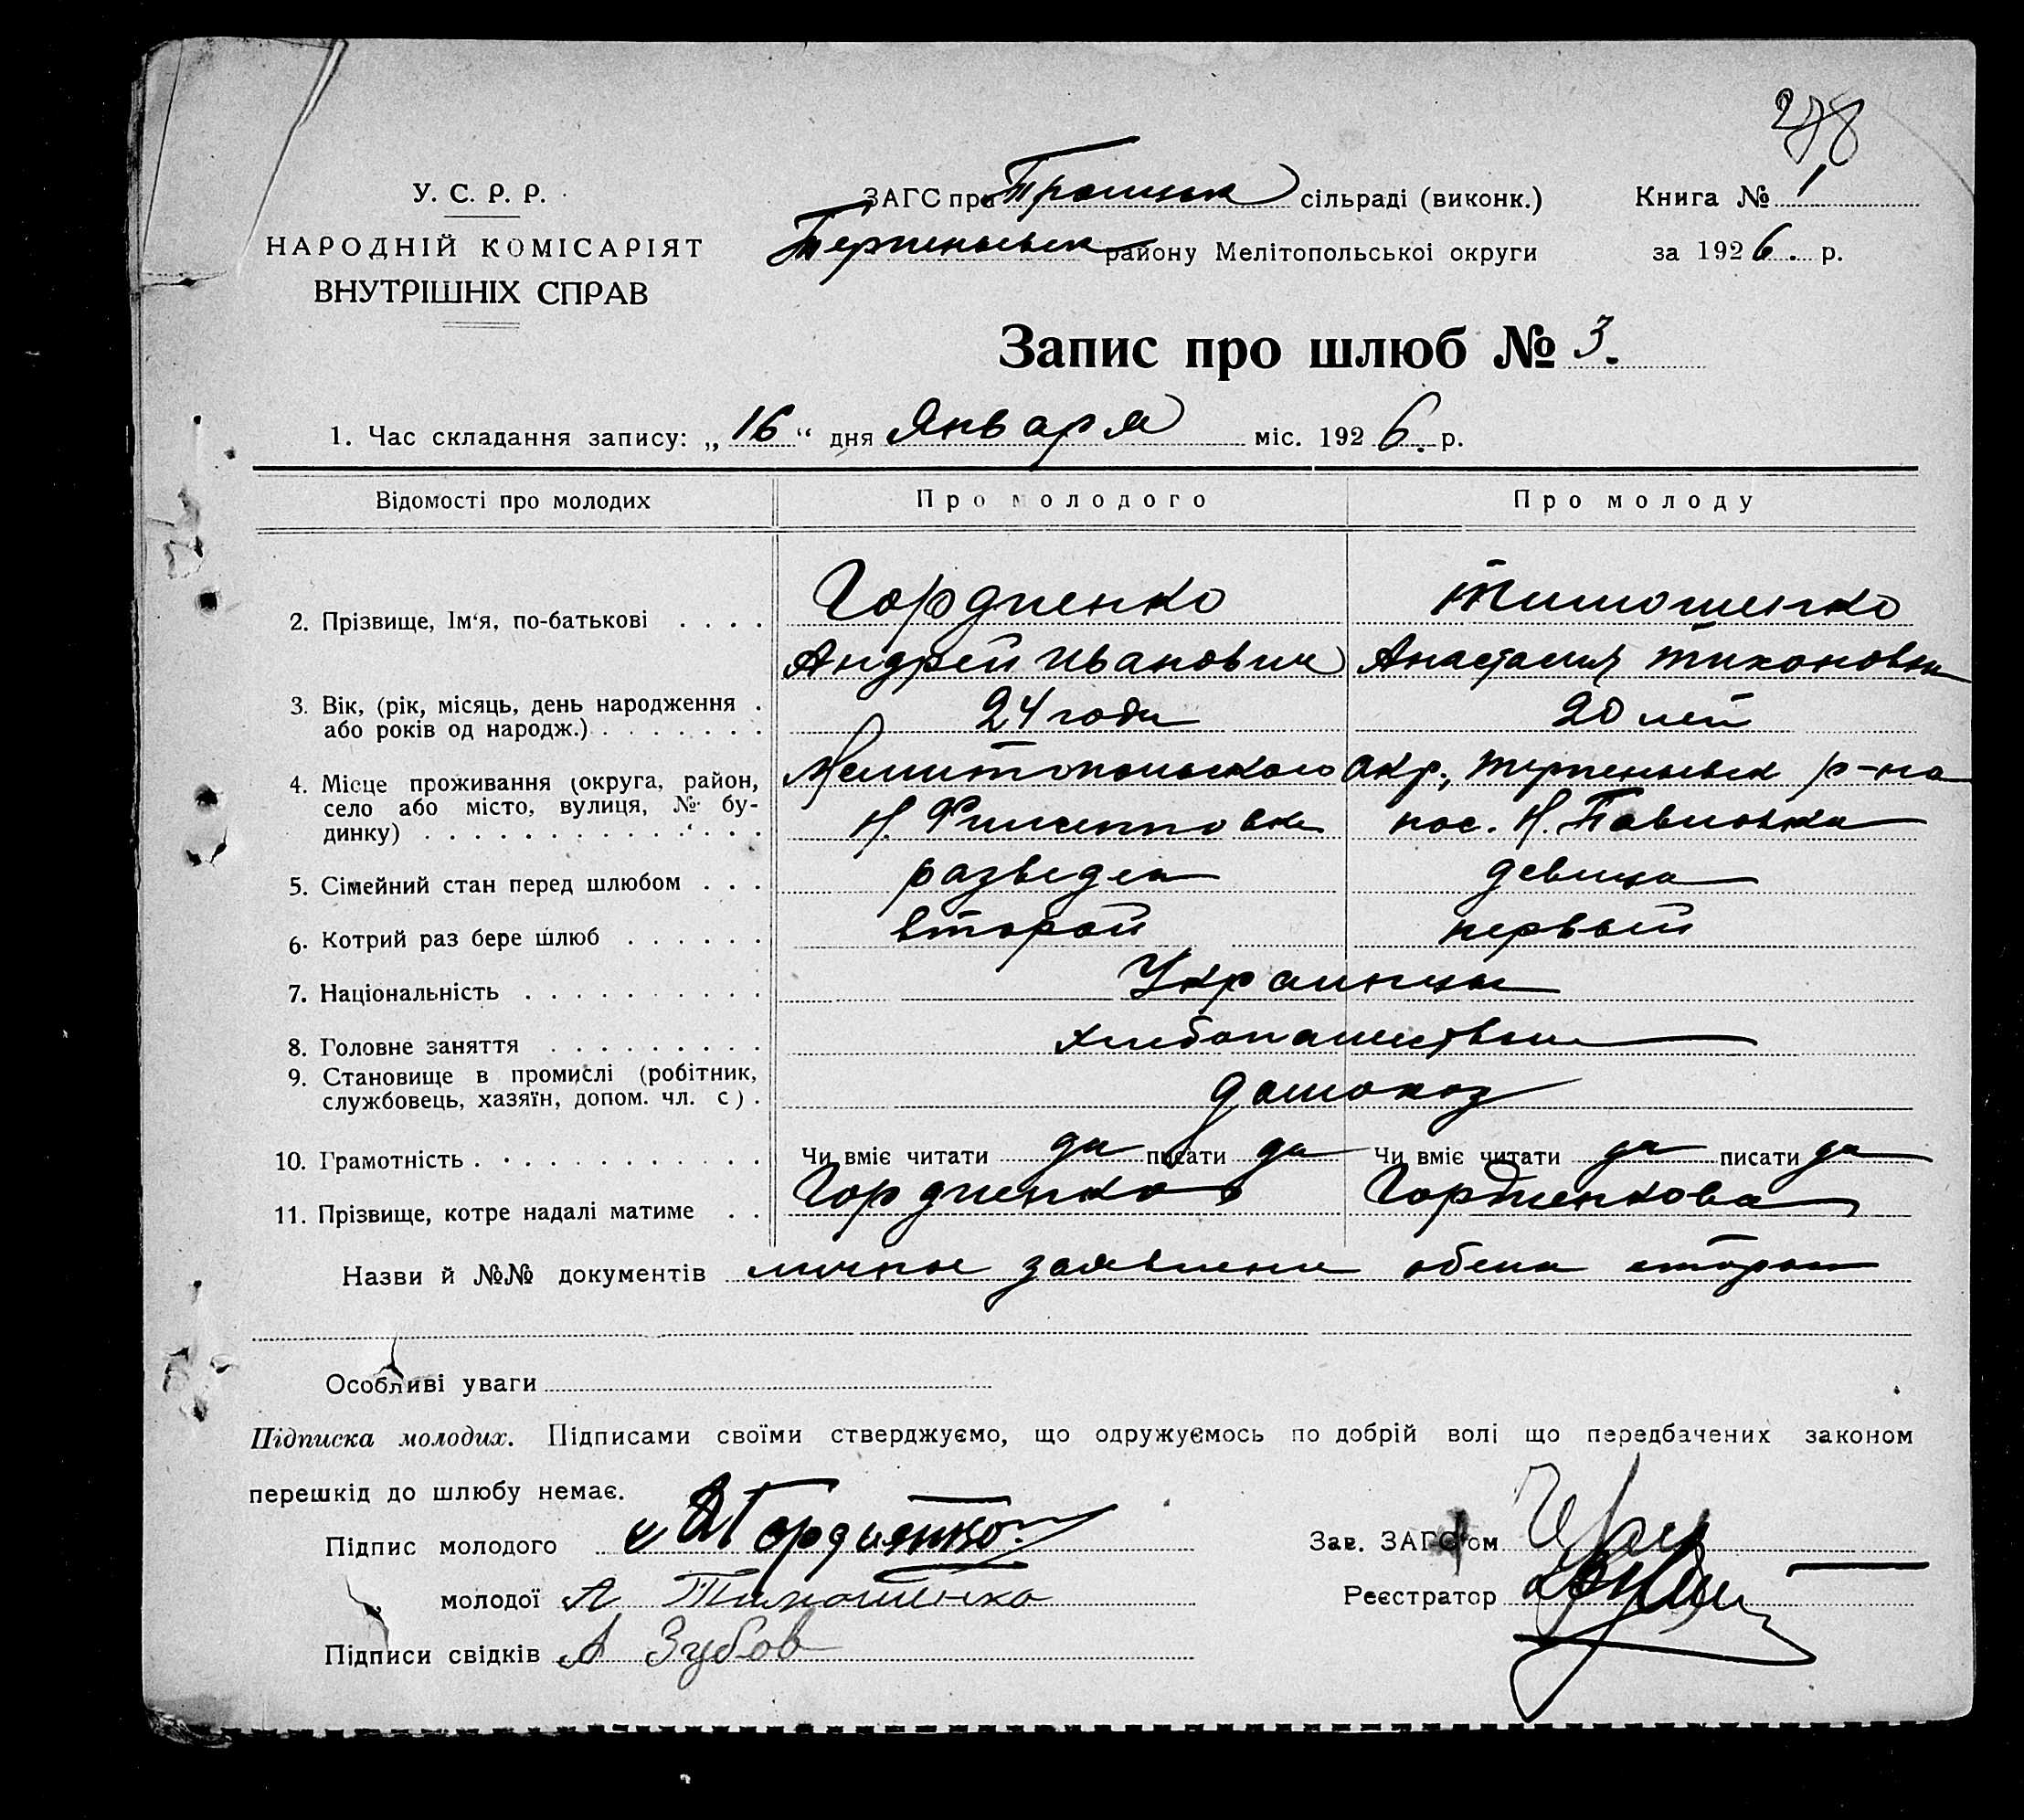 278
У. С. Р. Р.
НАРОДНІЙ КОМІСАРІЯТ
ВНУТРІШНІХ СПРАВ
ЗАГС при Троицк сільраді (виконк.)
Терпеньевск району Мелітопольської округи
Книга № 1
за 1926. р.
Запис про шлюб № 3.
1. Час складання запису: „16“ дня Января міс. 1926. р.
Відомості про молодих
Про молодого
Про молоду
2. Прізвище, Ім'я, по-батькові
Гордиенко
Андрей Иванович
Тимошенко
Анастасия Тихоновна
3. Вік, (рік, місяць, день народження
або років од народж.)
24 года
20 лет
4. Місце проживання (округа, район,
село або місто, вулиця, № бу-
динку)
Мелитопольского окр., Терпеньевск р-на
Н. Филипповка
пос. Н. Павловка
5. Сімейний стан перед шлюбом
разведен
девица
6. Котрий раз бере шлюб
второй
первый
7. Національність
Украинцы
8. Головне заняття
хлебопашество
9. Становище в промислі (робітник,
службовець, хазяїн, допом. чл. с)
домохоз
10. Грамотність
Чи вміє читати да писати да
Чи вміє читати да писати да
11. Прізвище, котре надалі матиме
Гордиенков
Гордиенкова
Назви й №№ документів личные заявлени обеих сторон
Особливі уваги
Підписка молодих. Підписами своїми стверджуємо, що одружуємось по добрій волі що передбачених законом
перешкід до шлюбу немає.
Підпис молодого А Гордиенко
молодої А Тимошенко
Підписи свідків А Зубов
Зав. ЗАГС'ом
Реєстратор